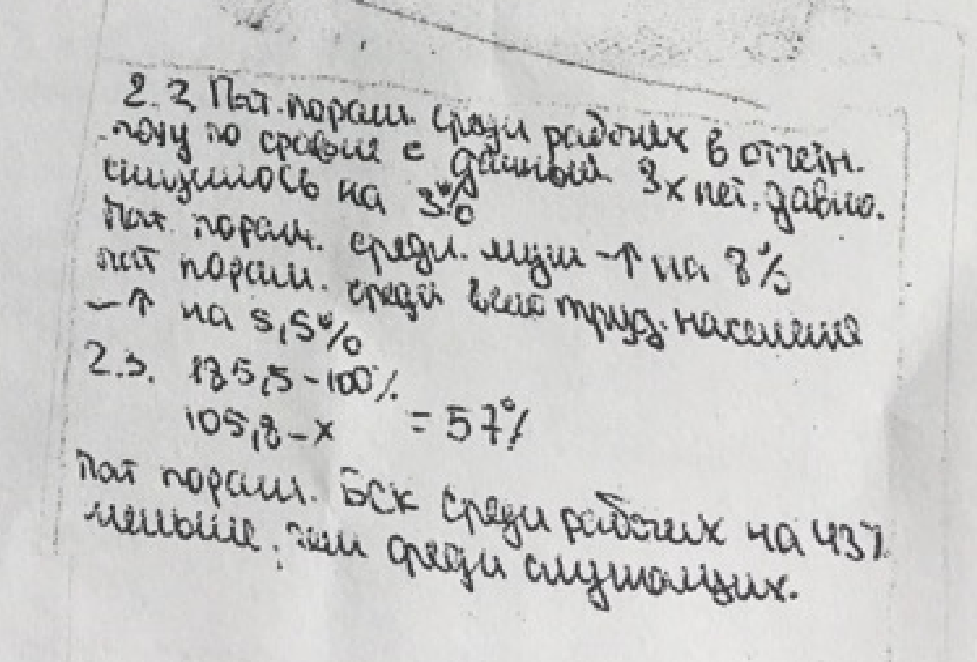 2.2 Пат. пораж. среди рабочих в отчетн.
году по сравне с данными 3х лет. давно.
снизилось на 3%
Пат. пораж. среди. мущ – ↑ на 8%
пат пораж. среди всего труд. населения
– ↑ на 5,5%
2.3. 185,5 – 100%
105,8 – x = 57%
Пат пораж. БСК среди рабочих на 43%
меньше, чем среди служащих.